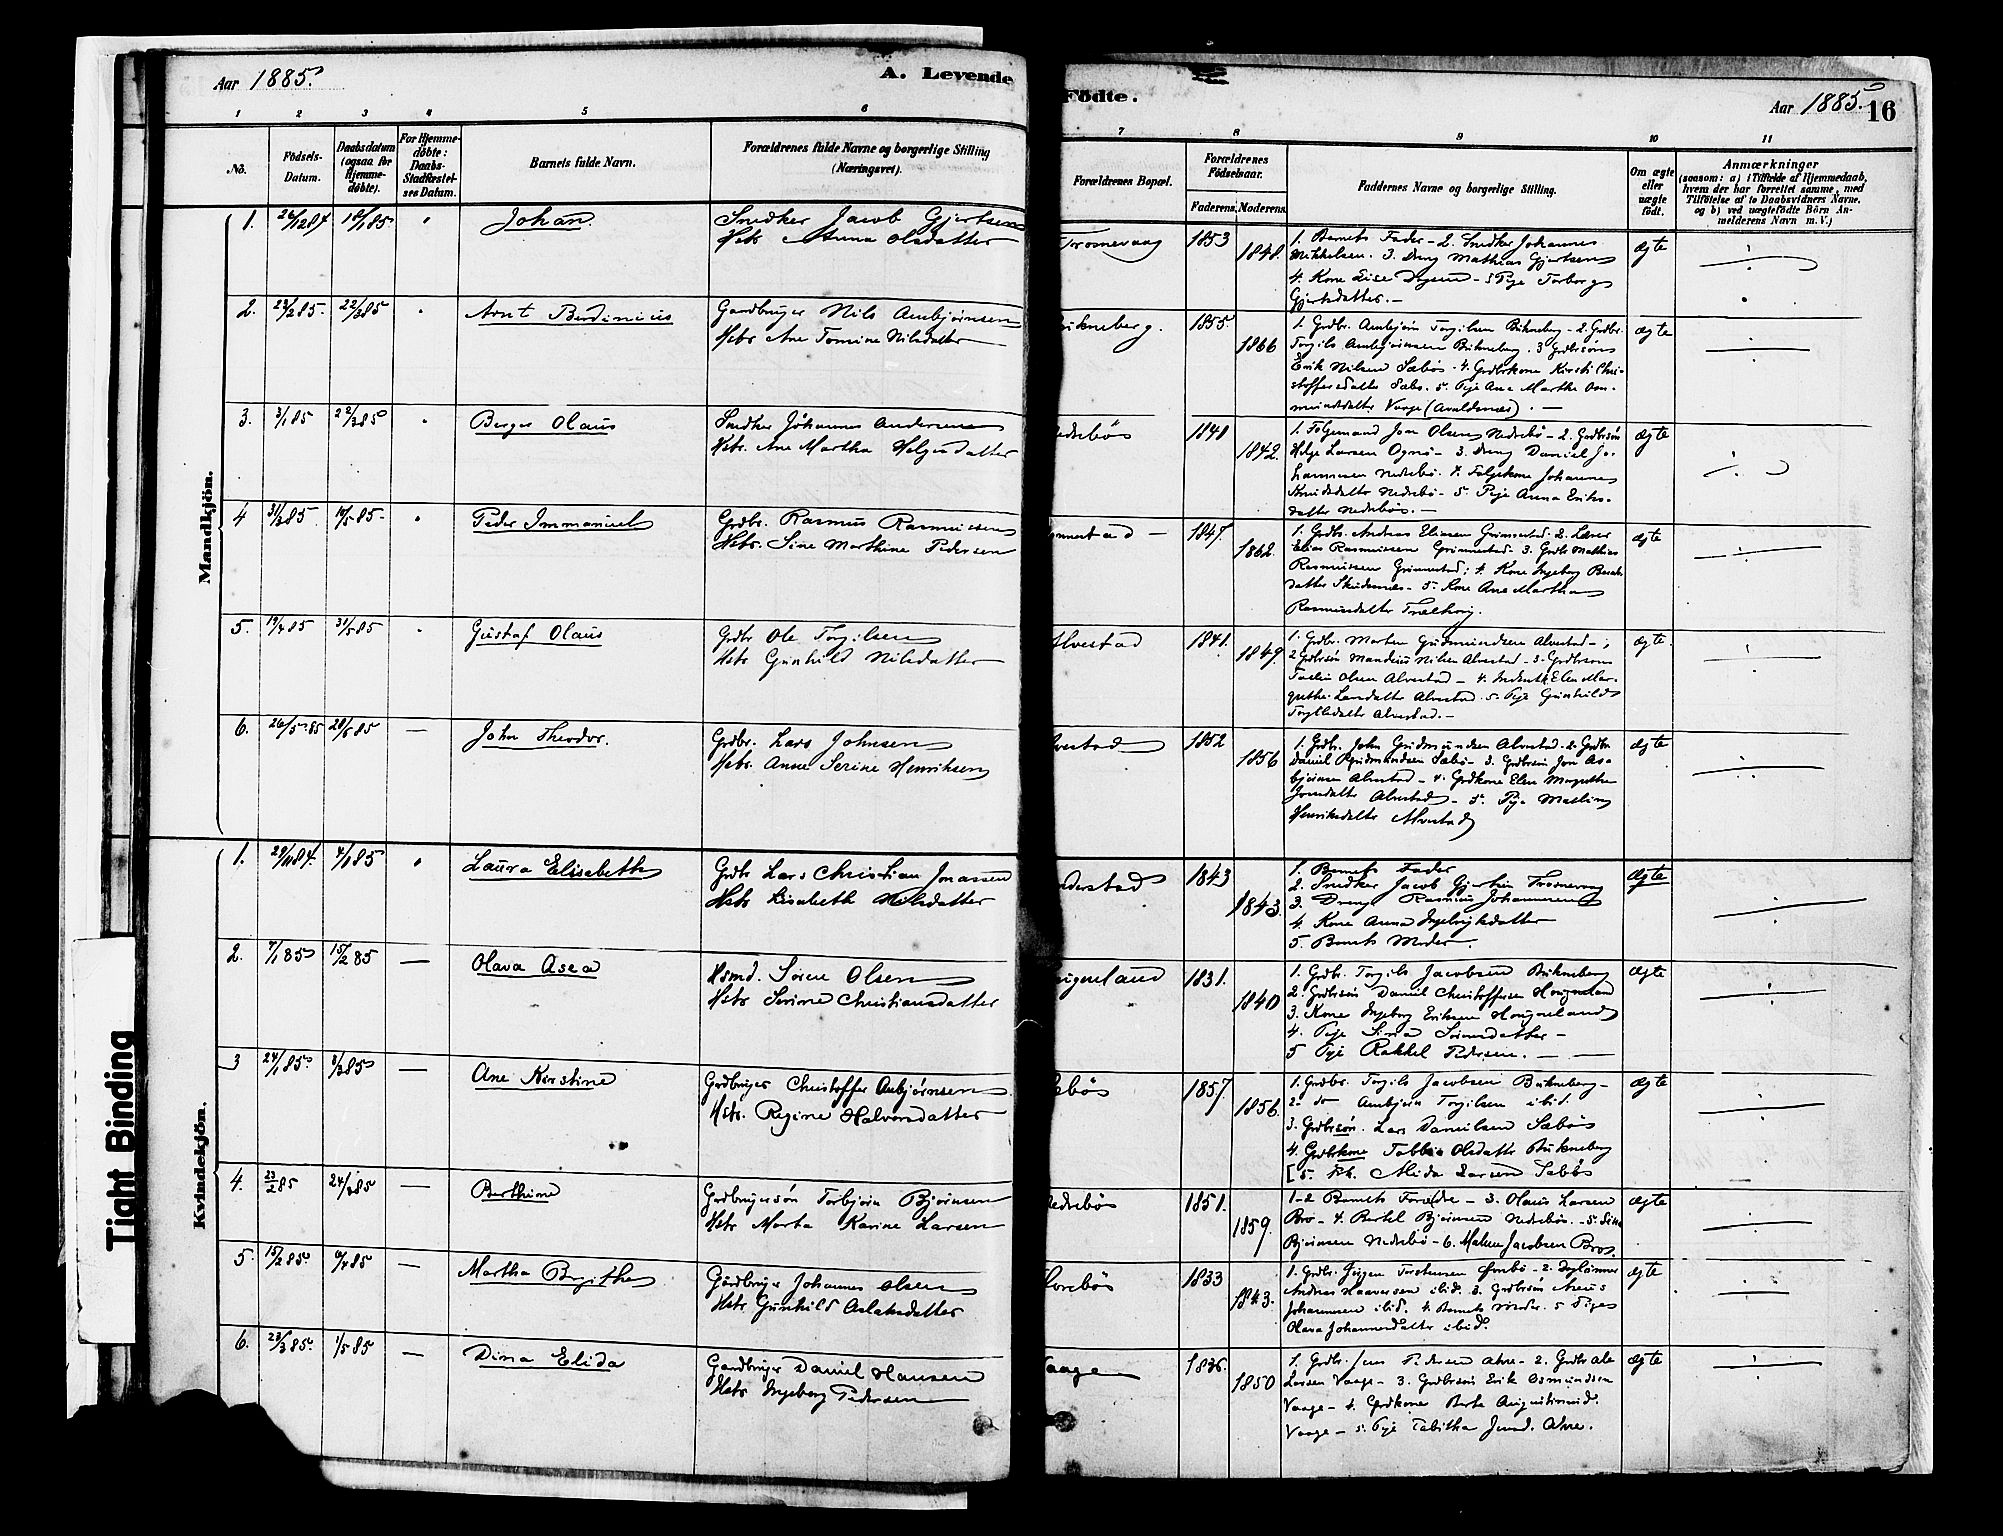 Aar 1885.
A. Levende
Fødte.
Aar 1885.
16
1 2 3 4 5 6 7 8 9 10 11
No.
Födsels-
Datum.
Daabsdatum
(ogsaa for
Hjemme-
döbte).
For Hjemme-
döbte:
Daabs-
Stadfæstel-
ses Datum.
Barnets fulde Navn.
Forældrenes fulde Navne og borgerlige Stilling
(Næringsvei).
Forældrenes Bopæl.
Forældrenes
Födselsaar.
Faderens. Moderens.
Faddernes Navne og borgerlige Stilling.
Om ægte
eller
uægte
födt.
Anmærkninger
(saasom: a) i Tilfælde af Hjemmedaab,
hvem der har forrettet samme, med
Tilföielse af to Daabsvidners Navne.
og b) ved uægtefödte Börn An-
melderens Navn m. V.)
Mandkjön.
1. Johan
Snedker Jacob Gjertsen
Hstr Anna Olsdatter
1853
1848.
1. Barnets Fader - 2. Snedker Johannes
Mikkelsen. 3. Dreng Mathias Gjertsen
4. Kone Lise - 5 Pige Torborg
Gjertsdatter. -
ægte
2. 23/2 85. 22/3 85
Arnt Berdinius
Gardbruger Nils Ambjørnsen
Hstr Ane Tomine Nilsdatter
ukneberg.
1855.
1866
1. Grdbr. Ambjørn Torgilsen Bukneberg - 2. Grdbr.
Torgils Ambjørnsen Bukneberg. 3 Grdbrsøn
Erik Nilsen Sæbø - 4. Grdbrkone Kirsti Chri-
stoffersdatter Sæbø. 5. Pige Ane Marthe Om-
mundsdatter Vaage (Avaldsnes). -
ægte
3. 3/1 85 22/3 85
Berger Olaus
Snedker Johannes Andersen
Hstr. Ane Martha Helgesdatter
edrebös
1842.
1. Folgemand Jon Olsen Nedrebö - 2. Grdbrsön
Helge Larsen Ognö - 3. Dreng Daniel Jo-
hannesen Nedrebö. 4. Folgekone Johanne
Knudsdatter Nedrebö - 5. Pige Anna Eriks-
datter Nedrebös. -
ægte
4 31/3 85. 14/5 85.
Peder Immanuel
Grdbr. Rasmus Rasmussen
Hstr. Sine Marthine Pedersen
mmestad -
1847.
1862.
1. Grdbr. Andreas Eliasen Grimmestad. 2. Lærer
Elias Rasmussen Grimmestad. 3. Grdbr Mathias
Rasmussen Grimmestad; 4. Kone Ingeborg
datter Skudesnes - 5. Kone Ane Martha
Rasmusdatter
ægte
5. 19/4 85 31/5 85
Gustaf Olaus
Grdbr Ole Torgilsen
Hstr Gunhild Nilsdatter
lvestad
1841.
1849.
1. Grdbr. Morten Gudmundsen Alvestad - ;
2 Grdbrsön Mandius Nilsen Alvestad - 3. Grdbrsøn
Olsen Alvestad - 4. Elen Mar-
grethe Larsdatter Alvestad. 5. Pige Gunhild
Torgilsdatter Alvestad. -
ægte.
6. 26/5 85 28/6 85 —
John Theodor.
Grdbr. Lars Johnsen
Hstr. Anne Serine Henriksen
vestad
1852
1856
1. Grdbr. John Gudmundsen Alvestad. 2. Grdbr
Daniel Gudmundsen Sæbö - 3. Grdbrsön Jon As-
björnsen Alvestad - 4. Grdkone Elen Margrethe
Jonsdatter Alvestad - 5. Pige
Henriksdatter Alvestad
ægte
Kvindekjön.
1. 29/11 84. 4/1 85
Laura Elisabeth
Grdbr Lars Christian Jonassen
Hstr Elisabeth Nilsdatter
derstad
1843
1843.
1. Barnets Fader
2. Snedker Jacob Gjertsen
3. Dreng Rasmus Johannesen
4. Kone Anna Ingebrigtsdatter
5. Barnets Moder.
ægte
2. 7/1 85 15/2 85 —
Olava Asea
Hsmd. Søren Olsen
Hstr Serine Christiansdatter
igneland
1831.
1840
1. Grdbr. Torgils Jacobsen Bukneberg
2. Grdbrsön Daniel Christoffersen Hougneland
3. Kone Ingeborg Eriksen Hougneland
4. Pige Sina Sörensdatter -
5 Pige Rakkel Pedersen. -
ægte
3 24/1 85. 8/3 85 —
Ane Kirstine
Grdbruger Christoffer Ambjørnsen
Hstr. Regine Halvorsdatter
ebös
1857.
1856.
1. Grdbr. Torgils Jacobsen Bukneberg -
2 - do Ambjørn Torgilsen ibid.
3. Grdbrsön. Lars Danielsen Sæbö
4. Grdbrkone Tabbia Olsdatter Bukneberg
[5. Pk. Alida Larsen Sæbö
ægte
4. 23/2 85 24/3 85 —
Berthine
Gardbrugersön Torbjörn Bjørnsen
Hstr Marta Karine Larsen
edrebös
1851.
1859.
1-2 Barnets Forældre - 3. Olaus Larsen
Bro - 4. Bertel Bjørnsen Nedrebö. - 5.
Bjørnsen Nedrebö - 6. Malene Jacobsen Bro.
ægte
5. 15/2 85. 6/4 85 —
Martha Birgithe
Gardbruger Johannes Olsen
Hstr Gunhild Aslaksdatter
1833
1843.
1. Grdbr. Jörgen Torstensen Øvrebö - 2.
Andreas Haaversen ibid. 3. Grdbrsön
Johannesen ibid. 4. Barnets Moder. 5 Pige
Olava Johannesdatter ibid.
ægte
6. 23/3 85. 1/5 85 —
Dina Elida
Gardbruger Daniel Hansen
Hstr Ingeborg Pedersen
aage
1836.
1850
1. Grdbr. Jens Pedersen Ahre - 2. Grdbr Ole
Larsen Vaage - 3. Grdbrsön Erik Osmundsen
Vaage - 4. Grdkone Berta Augustinusd.
Vaage - 5. Pige Tabitha Jensd. Ahre.
ægte
Tight Binding